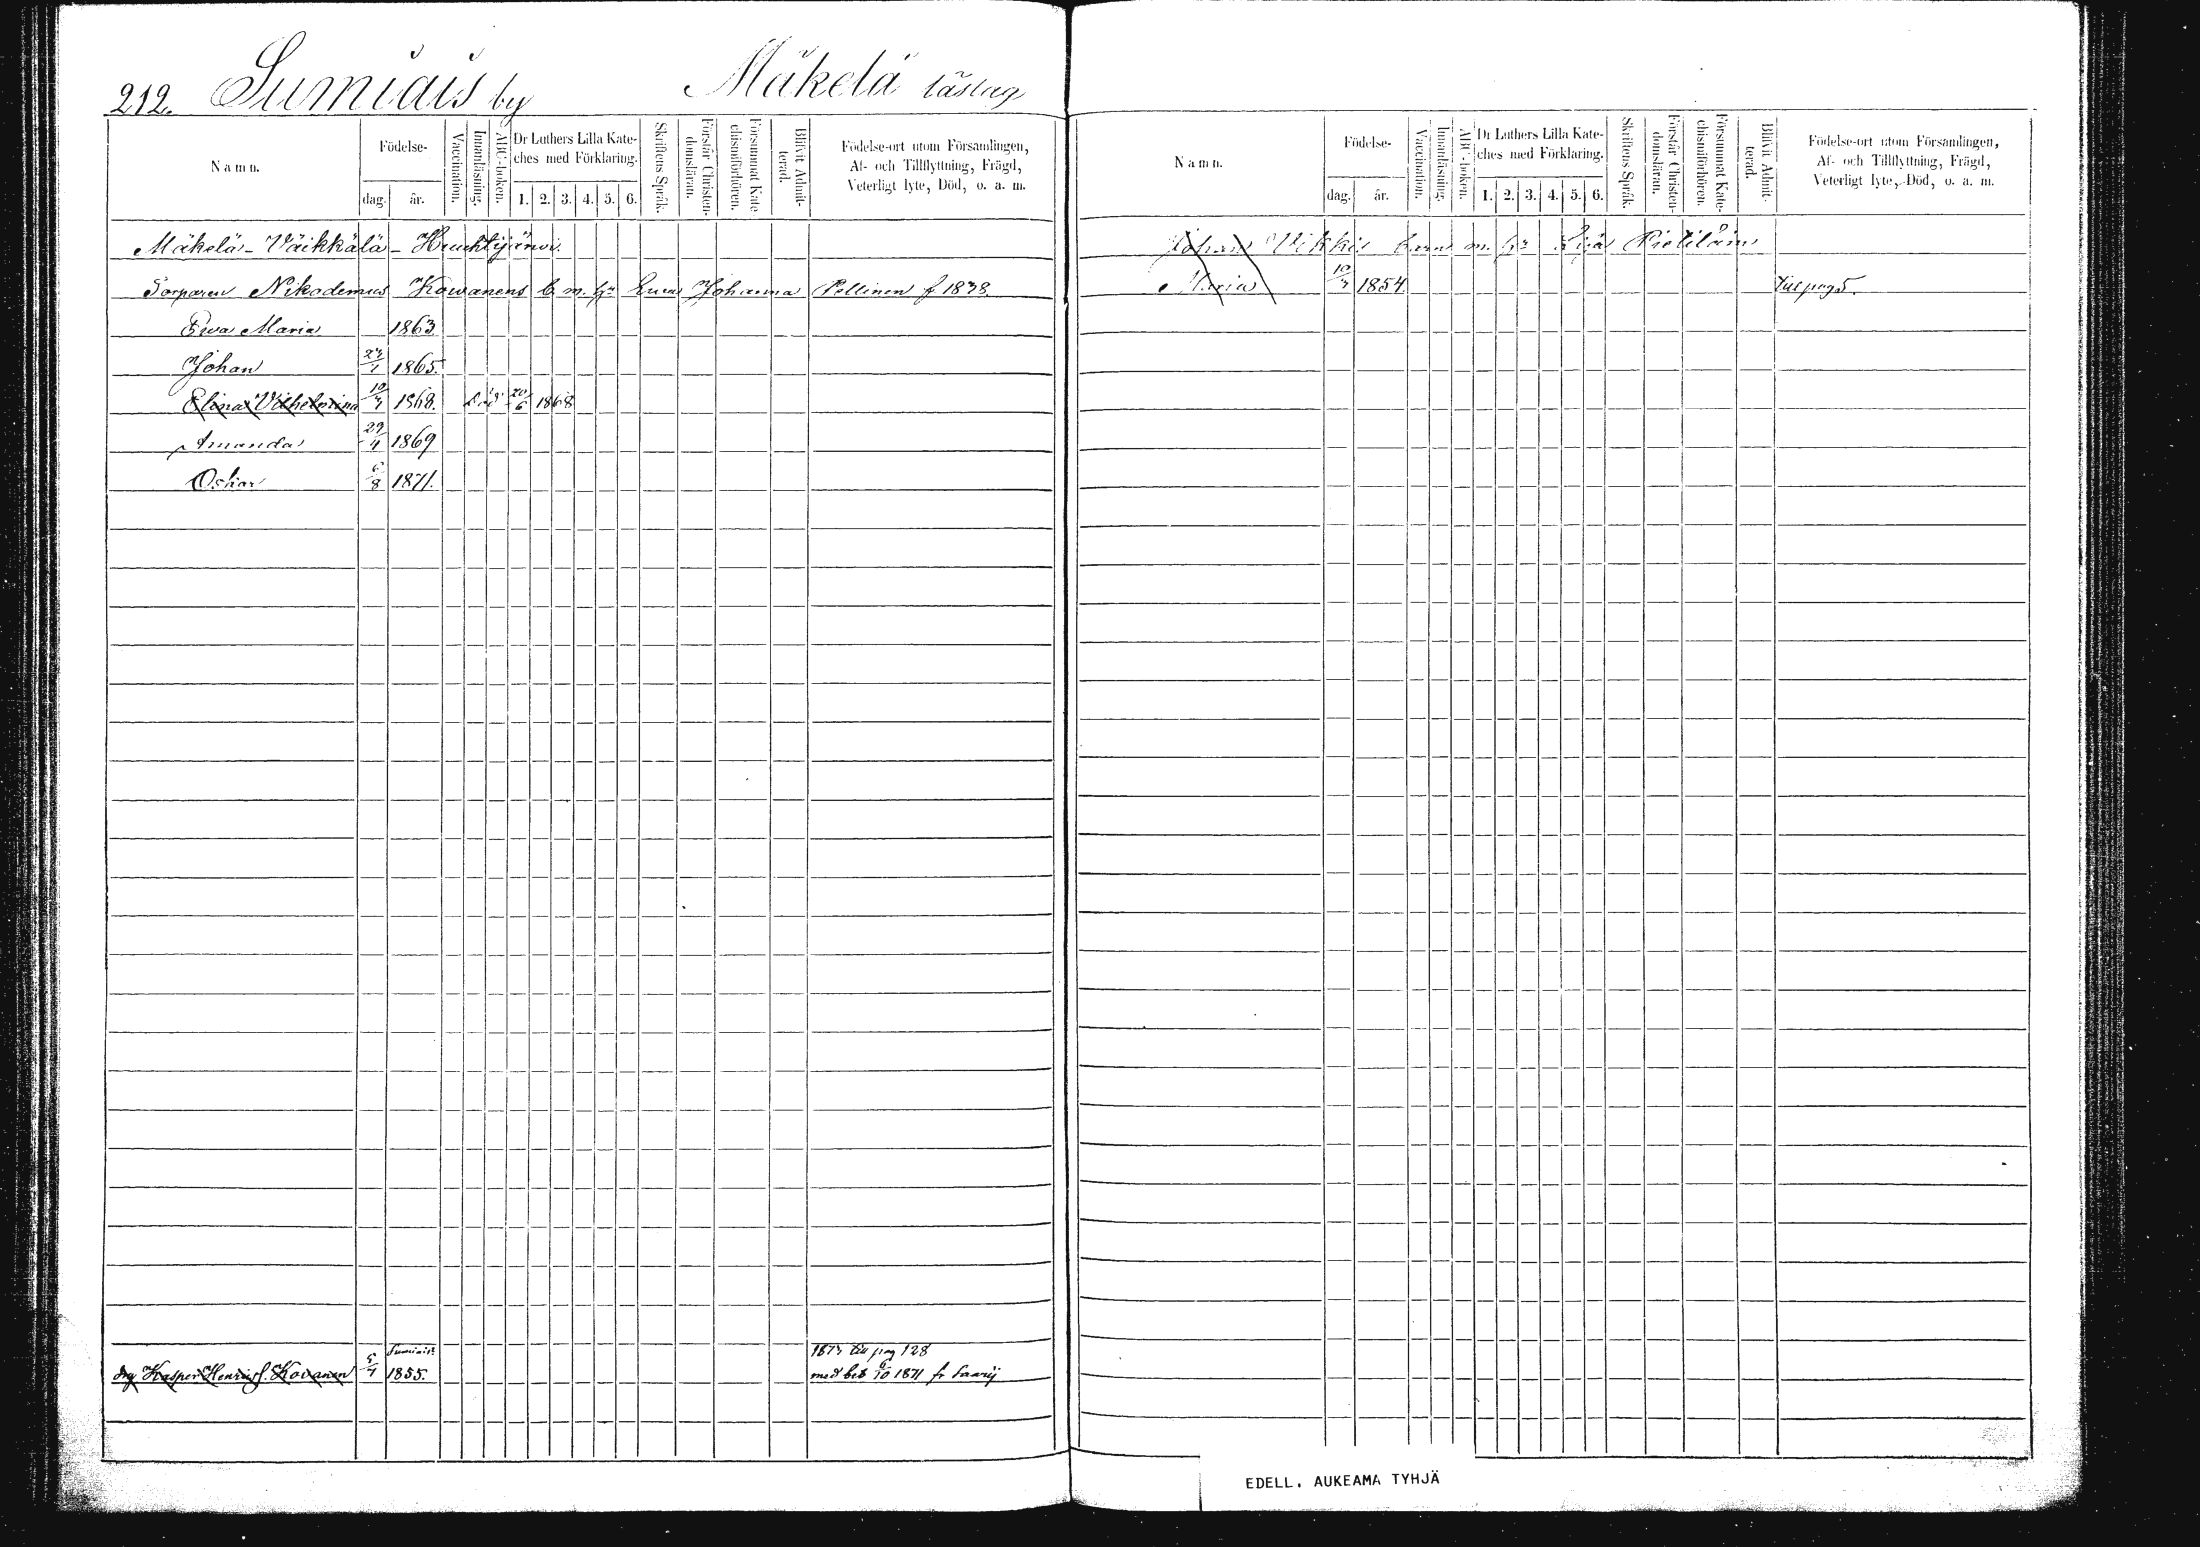 212. Sumiais by Mäkelä läslag
Namn.
Födelse-
dag. år.
Vaccination.
Innanläsning.
ABC-boken.
Dr Luthers Lilla Kate-
ches med Förklaring.
1. 2. 3. 4. 5. 6.
Skriftens Språk.
Förstår Christen-
domsläran.
Försummat Kate-
chismiförhören.
Blifvit Admit-
terad.
Födelse-ort utom Församlingen,
Af- och Tillflyttning, Frägd,
Veterligt lyte, Död, o. a. m.
Mäkelä - Väikkälä - Hruchtijärvi
Torparen Nikodemus Kowanens b. m. hu Eva Johanna Pellinen f 1838.
Ewa Maria 1863
Johan 27/1 1865.
Elina Vilhelmina 10/3 1868. död 20/6 1868
Amanda 29/4 1869
Oskar 6/8 1871.
Sumiais 1873 till pag 128
drg Kasper Henriks. Kovanen 5/4 1855. med bet 6/10 1871 fr Saarij
Namn.
Födelse-
dag. år.
Vaccination.
Innanläsning.
ABC-boken.
Dr Luthers Lilla Kate-
ches med Förklaring.
1. 2. 3. 4. 5. 6.
Skriftens Språk.
Förstår Christen-
domsläran.
Försummat Kate-
chismiförhören.
Blifvit Admit-
terad.
Födelse-ort utom Församlingen,
Af- och Tillflyttning, Frägd,
Veterligt lyte, Död, o. a. m.
Johan Vikkis barn m. hu Lisa Pietiläin
Maria 10/3 1854. pag 5.
EDELL. AUKEAMA TYHJÄ